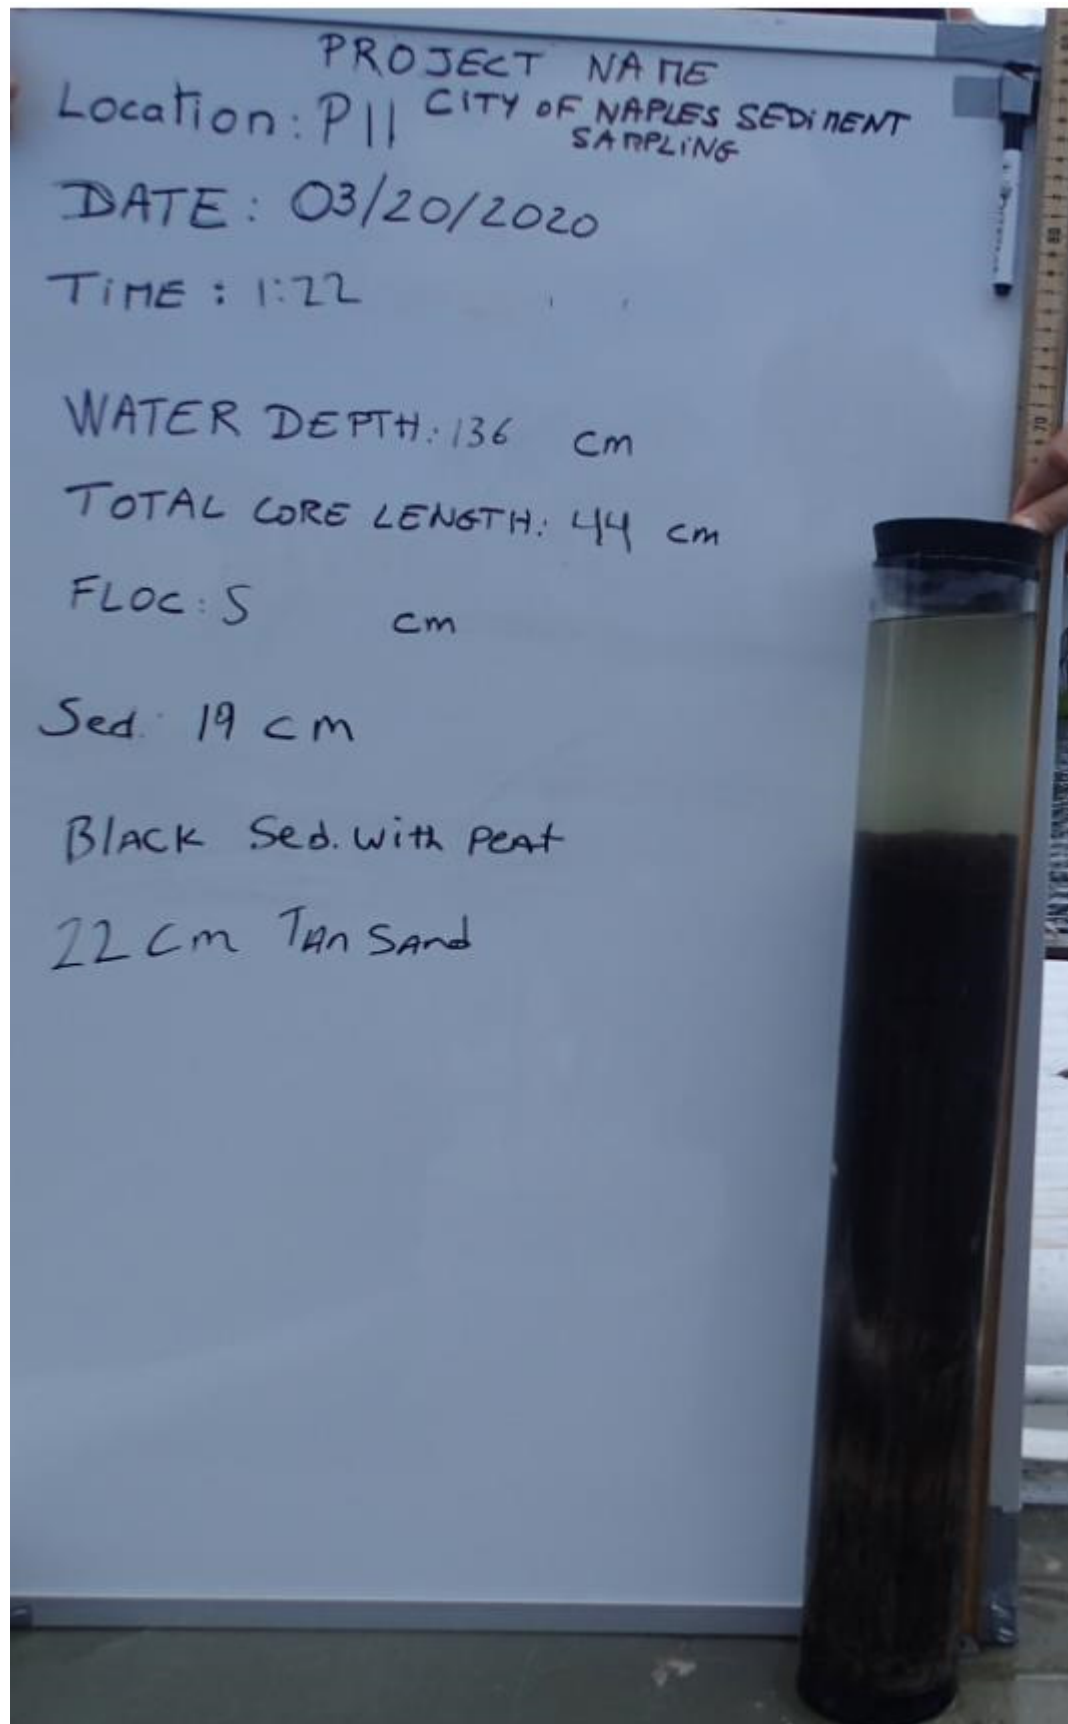 PROJECT NAME
Location: P11 CITY OF NAPLES SEDIMENT
SAMPLING
DATE: 03/20/2020
TIME: 1:22
WATER DEPTH: 136 cm
TOTAL CORE LENGTH: 44 cm
FLOC: 5 cm
Sed: 19 cm
BLACK Sed. With PEAT
22 Cm TAn SAnd
70
80